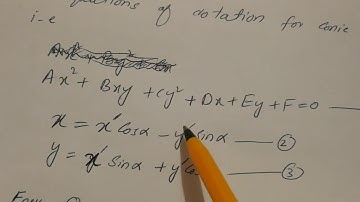 equations of rotation for conic
i-e
Ax² + Bxy + Cy² + Dx + Ey + F = 0 —
x = x' cosα - y' sinα — ②
y = x' sinα + y' — ③